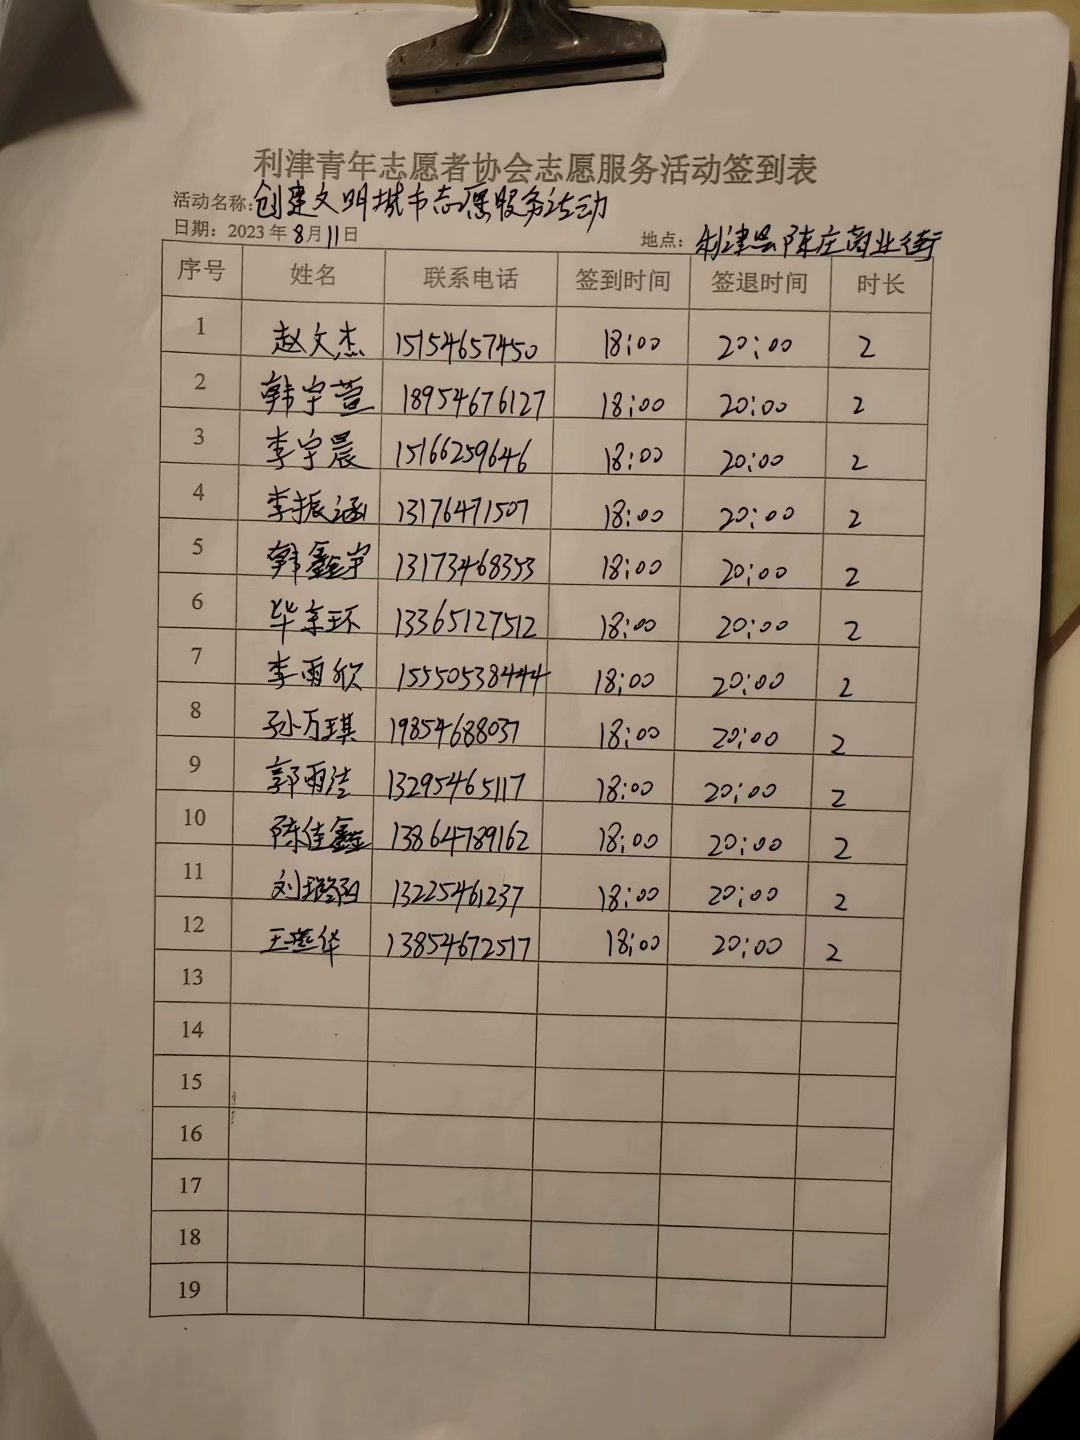 利津青年志愿者协会志愿服务活动签到表
活动名称:创建文明城市志愿服务活动
日期：2023年8月11日 地点：利津县陈庄商业街
序号 姓名 联系电话 签到时间 签退时间 时长
1 赵文杰 15154657450 18:00 20:00 2
2 韩宇萱 18954676127 18:00 20:00 2
3 李宇晨 15166259646 18:00 20:00 2
4 李振涵 13176471507 18:00 20:00 2
5 韩鑫宇 13173468353 18:00 20:00 2
6 13365127512 18:00 20:00 2
7 李雨欣 15550538444 18:00 20:00 2
8 孙万琪 19854688037 18:00 20:00 2
9 郭雨洁 13295465117 18:00 20:00 2
10 陈佳鑫 13864789162 18:00 20:00 2
11 13225461237 18:00 20:00 2
12 13854672517 18:00 20:00 2
13
14
15
16
17
18
19